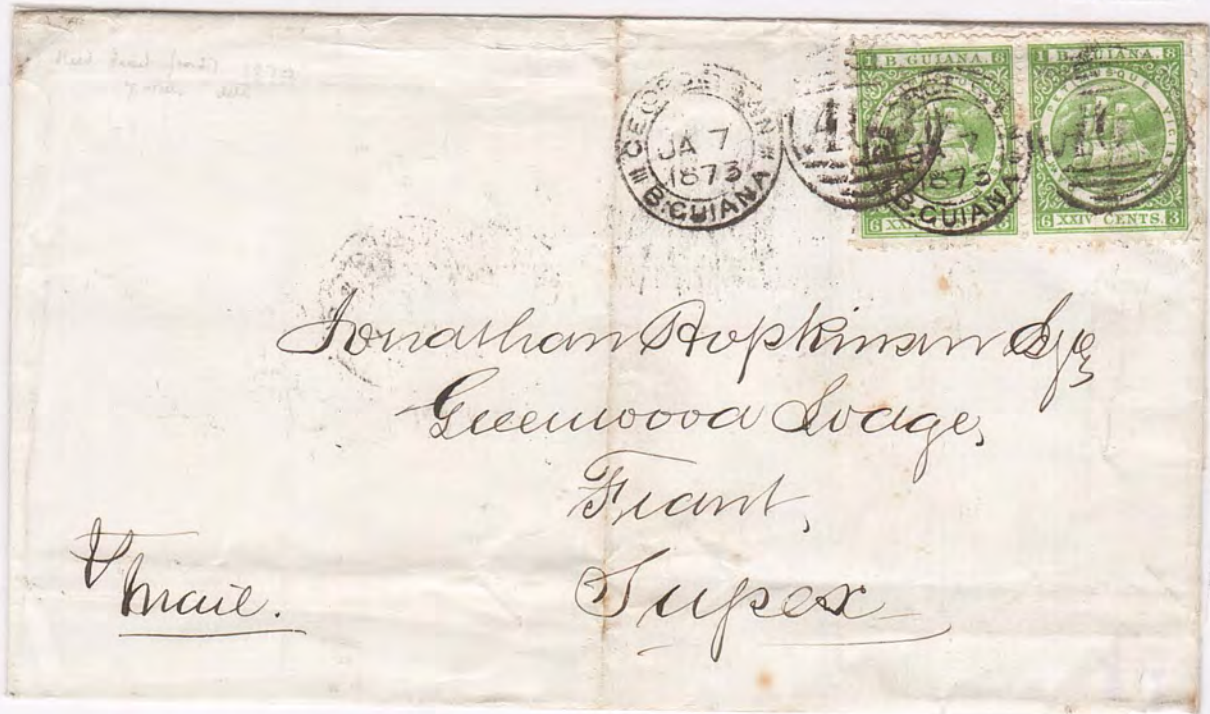 GEORGETOWN
JA 7
1873
B. GUIANA
1 B. GUIANA. 6
6 3
JA 7
1873
B. GUIANA
1 B. GUIANA. 8
PETIMUSQUE VICIS
6 XXIV CENTS. 3
Jonathan Hopkinson Esqre
Greenwood Lodge,
Frant,
Sussex
Mail.